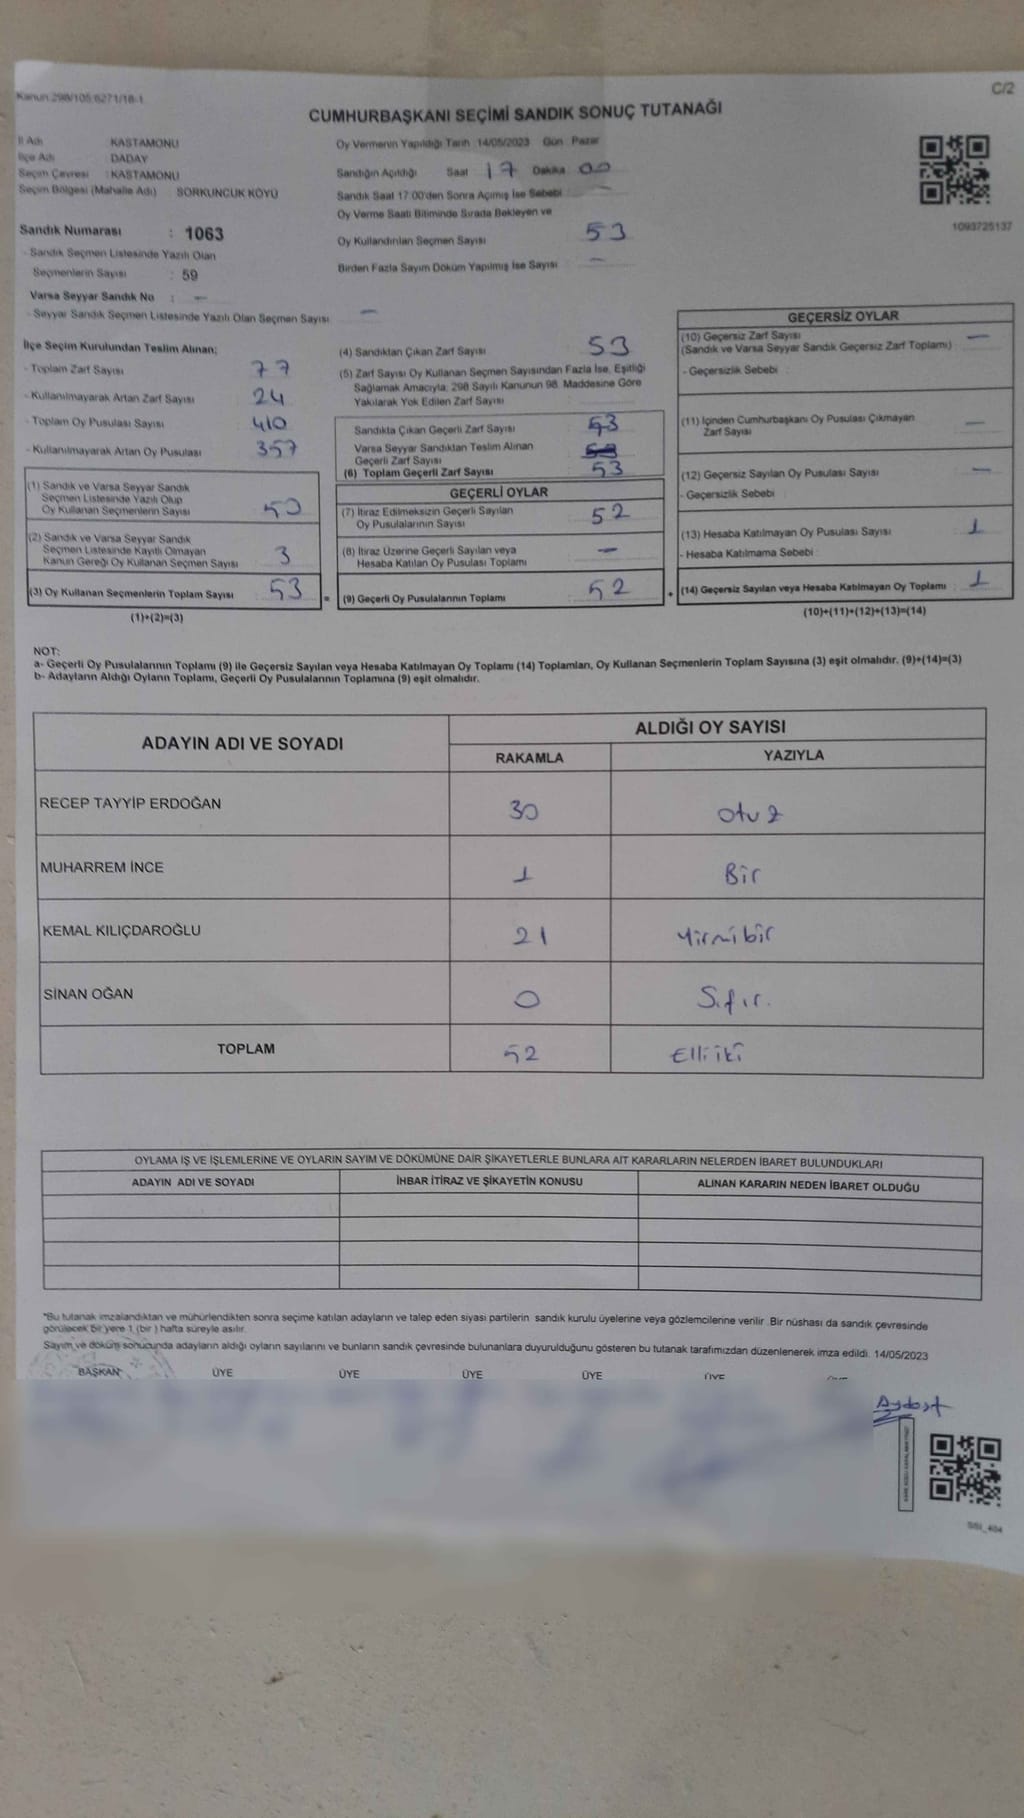 Kanun:298/105;6271/18-1
C/2
CUMHURBAŞKANI SEÇİMİ SANDIK SONUÇ TUTANAĞI
İl Adı : KASTAMONU
İlçe Adı : DADAY
Seçim Çevresi : KASTAMONU
Seçim Bölgesi (Mahalle Adı) : SORKUNCUK KÖYÜ
Sandık Numarası : 1063
- Sandık Seçmen Listesinde Yazılı Olan
Seçmenlerin Sayısı : 59
Varsa Seyyar Sandık No : —
- Seyyar Sandık Seçmen Listesinde Yazılı Olan Seçmen Sayısı : —
Oy Vermenin Yapıldığı Tarih : 14/05/2023 Gün : Pazar
Sandığın Açıldığı Saat 17 Dakika 00
Sandık Saat 17:00'den Sonra Açımış İse Sebebi : —
Oy Verme Saati Bitiminde Sırada Bekleyen ve
Oy Kullandırılan Seçmen Sayısı : 53
Birden Fazla Sayım Döküm Yapılmış İse Sayısı : —
1093725137
İlçe Seçim Kurulundan Teslim Alınan;
- Toplam Zarf Sayısı : 77
- Kullanılmayarak Artan Zarf Sayısı : 24
- Toplam Oy Pusulası Sayısı : 410
- Kullanılmayarak Artan Oy Pusulası : 357
(1) Sandık ve Varsa Seyyar Sandık
Seçmen Listesinde Yazılı Olup
Oy Kullanan Seçmenlerin Sayısı : 50
(2) Sandık ve Varsa Seyyar Sandık
Seçmen Listesinde Kayıtlı Olmayan
Kanun Gereği Oy Kullanan Seçmen Sayısı : 3
(3) Oy Kullanan Seçmenlerin Toplam Sayısı : 53
(1)+(2)=(3)
(4) Sandıktan Çıkan Zarf Sayısı : 53
(5) Zarf Sayısı Oy Kullanan Seçmen Sayısından Fazla İse, Eşitliği
Sağlamak Amacıyla; 298 Sayılı Kanunun 98. Maddesine Göre
Yakılarak Yok Edilen Zarf Sayısı :
Sandıkta Çıkan Geçerli Zarf Sayısı : 53
Varsa Seyyar Sandıktan Teslim Alınan
Geçerli Zarf Sayısı
(6) Toplam Geçerli Zarf Sayısı : 53
GEÇERLİ OYLAR
(7) İtiraz Edilmeksizin Geçerli Sayılan
Oy Pusulalarının Sayısı : 52
(8) İtiraz Üzerine Geçerli Sayılan veya
Hesaba Katılan Oy Pusulası Toplamı : —
= (9) Geçerli Oy Pusulalarının Toplamı : 52
GEÇERSİZ OYLAR
(10) Geçersiz Zarf Sayısı : —
(Sandık ve Varsa Seyyar Sandık Geçersiz Zarf Toplamı)
- Geçersizlik Sebebi :
(11) İçinden Cumhurbaşkanı Oy Pusulası Çıkmayan
Zarf Sayısı : —
(12) Geçersiz Sayılan Oy Pusulası Sayısı : —
- Geçersizlik Sebebi :
(13) Hesaba Katılmayan Oy Pusulası Sayısı : 1
- Hesaba Katılmama Sebebi :
+ (14) Geçersiz Sayılan veya Hesaba Katılmayan Oy Toplamı : 1
(10)+(11)+(12)+(13)=(14)
NOT:
a- Geçerli Oy Pusulalarının Toplamı (9) ile Geçersiz Sayılan veya Hesaba Katılmayan Oy Toplamı (14) Toplamları, Oy Kullanan Seçmenlerin Toplam Sayısına (3) eşit olmalıdır. (9)+(14)=(3)
b- Adayların Aldığı Oyların Toplamı, Geçerli Oy Pusulalarının Toplamına (9) eşit olmalıdır.
ADAYIN ADI VE SOYADI ALDIĞI OY SAYISI
RAKAMLA YAZIYLA
RECEP TAYYİP ERDOĞAN 30 Otuz
MUHARREM İNCE 1 Bir
KEMAL KILIÇDAROĞLU 21 Yirmibir
SİNAN OĞAN 0 Sıfır.
TOPLAM 52 Elliiki
OYLAMA İŞ VE İŞLEMLERİNE VE OYLARIN SAYIM VE DÖKÜMÜNE DAİR ŞİKAYETLERLE BUNLARA AİT KARARLARIN NELERDEN İBARET BULUNDUKLARI
ADAYIN ADI VE SOYADI İHBAR İTİRAZ VE ŞİKAYETİN KONUSU ALINAN KARARIN NEDEN İBARET OLDUĞU
*Bu tutanak imzalandıktan ve mühürlendikten sonra seçime katılan adayların ve talep eden siyasi partilerin sandık kurulu üyelerine veya gözlemcilerine verilir. Bir nüshası da sandık çevresinde
görülecek bir yere 1 (bir ) hafta süreyle asılır.
Sayım ve döküm sonucunda adayların aldığı oyların sayılarını ve bunların sandık çevresinde bulunanlara duyurulduğunu gösteren bu tutanak tarafımızdan düzenlenerek imza edildi. 14/05/2023
BAŞKAN ÜYE ÜYE ÜYE ÜYE ÜYE